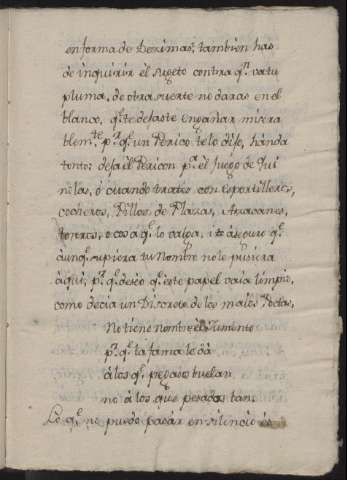 en forma de Dezimas, tambien has
de inquirir el sugeto contra qn. va tu
pluma, de otra suerte no daras en el
blanco, qe. te dejaste engañar misera
blemte. pr. qe. un Perico te lo dijo, hànda
tonto: deja el Pericon pa. el juego de Qui
nolas, ò cuando trates con esportilleros,
cocheros, Pillos de Plazas, i Arazanes,
toreros, o cosa qe. lo valga, i te aseguro qe.
aunqe. supiera tu Nombre no le pusiera
aqui, pr. qe. deseo qe. este papel vaia limpio,
como decia un Discreto de los malos Poetas,
No tiene nombre
pr. qe. la fama le dà
à los qe. pegaso buelan
no à los que pesados
Lo qe. no puedo pasar en silencio es